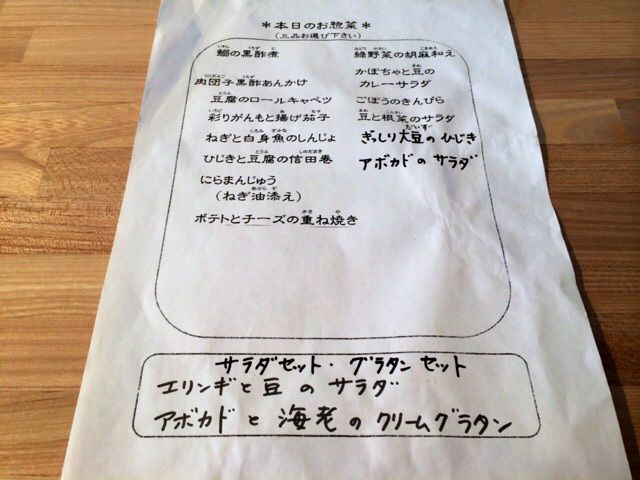 ＊本日のお惣菜＊
（三品お選び下さい）
鰯の黒酢煮
肉団子黒酢あんかけ
豆腐のロールキャベツ
彩りがんもと揚げ茄子
ねぎと白身魚のしんじょ
ひじきと豆腐の信田巻
にらまんじゅう
（ねぎ油添え）
ポテトとチーズの重ね焼き
緑野菜の胡麻和え
かぼちゃと豆の
カレーサラダ
ごぼうのきんぴら
豆と根菜のサラダ
ぎっしり大豆のひじき
アボカドのサラダ
サラダセット・グラタンセット
エリンギと豆のサラダ
アボカドと海老のクリームグラタン